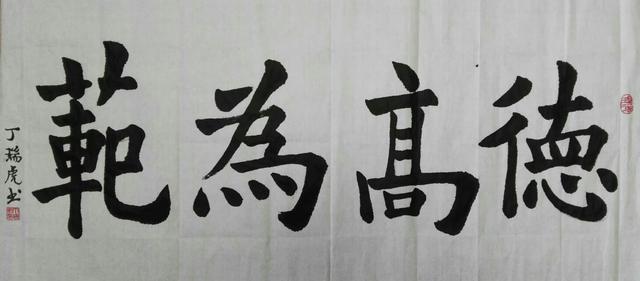 德高為範
丁瑞虎书